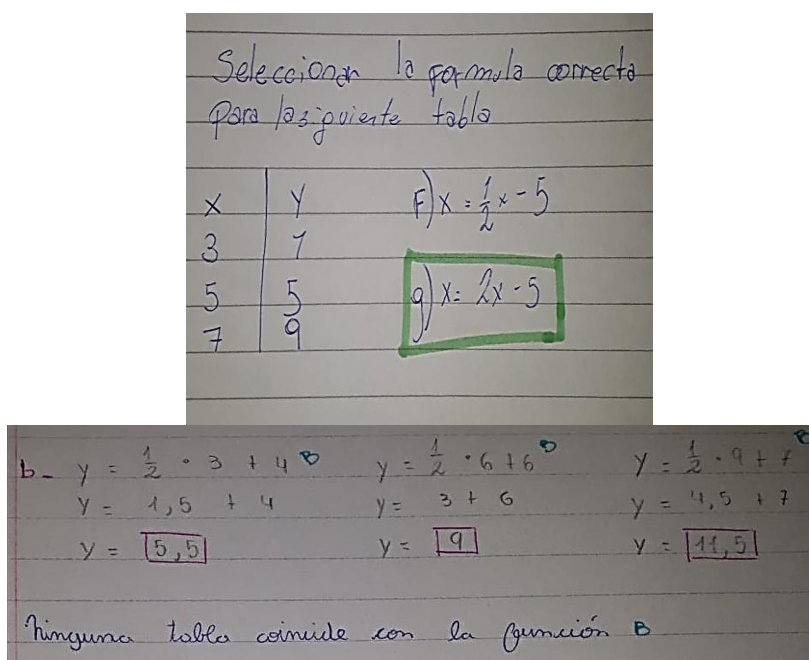 Seleccionar la formula correcta
para la siguiente tabla
x y
3 1
5 5
7 9
F) x = 1/2 x - 5
g) x = 2x - 5
b- y = 1/2 · 3 + 4 B
y = 1,5 + 4
y = 5,5
y = 1/2 · 6 + 6 B
y = 3 + 6
y = 9
y = 1/2 · 9 + 7 B
y = 4,5 + 7
y = 11,5
Ninguna tabla coincide con la función B